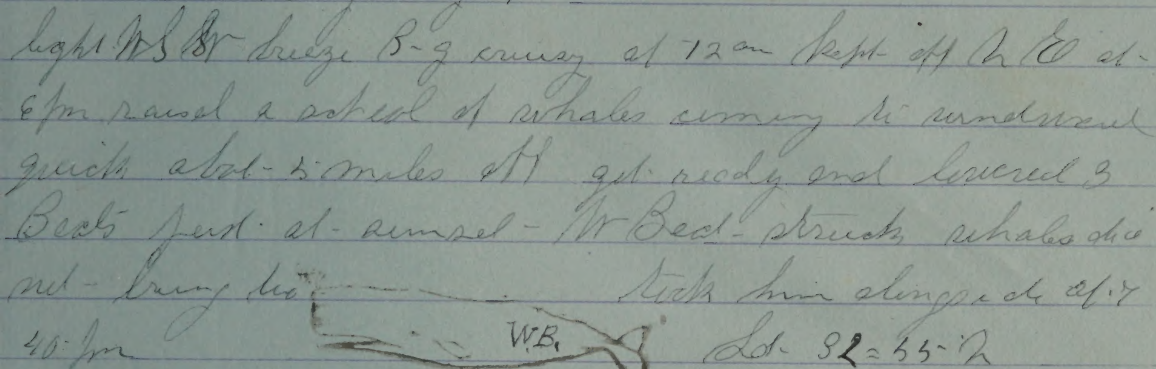 light W S W breeze B-g cruisy at 12 am kept off N E at
6 pm raised a school of whales coming to windward
quick abot 5 miles off got ready and lowered 3
Boats just at sunset W Boat struck whales did
not bring too took him alongside at 7
40 pm W.B. Lat 32=55 N